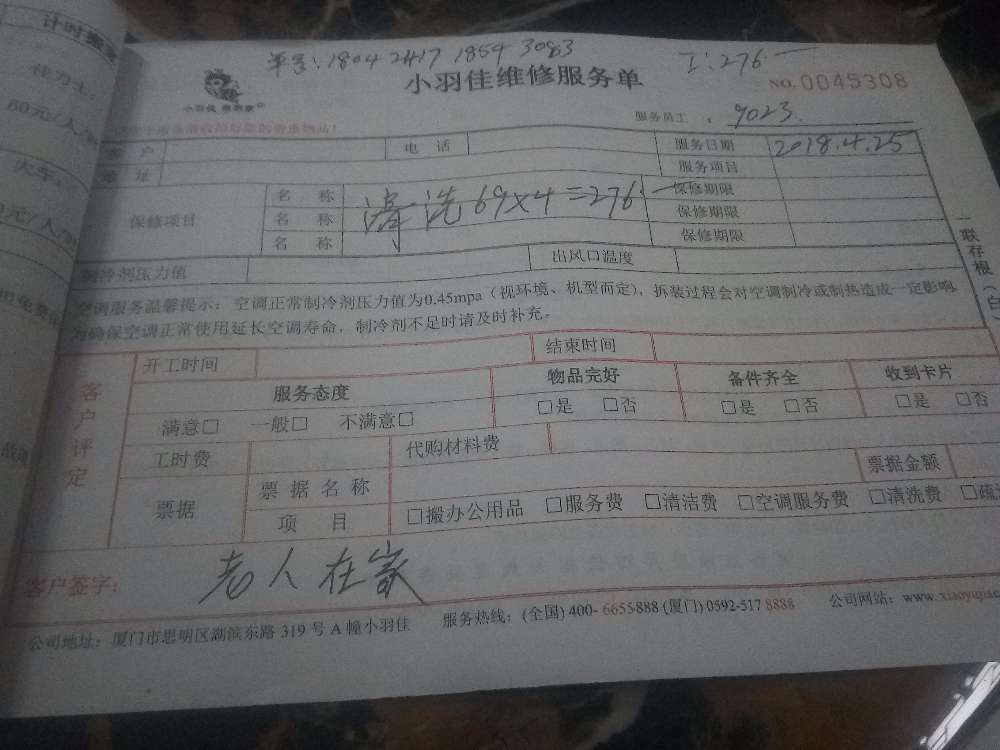 单号:1804 2417 1854 3083
工:276
小羽佳维修服务单
NO.0045308
服务员工 : 9023.
客 户 电 话 服务日期 2018.4.25
地 址 服务项目
保修项目 名 称 清洗69×4=276 保修期限
名 称 保修期限
名 称 保修期限
制冷剂压力值 出风口温度
空调服务温馨提示:空调正常制冷剂压力值为0.45mpa(视环境、机型而定),拆装过程会对空调制冷或制热造成一定影响
为确保空调正常使用延长空调寿命,制冷剂不足时请及时补充。
一联存根(白
客户评定
开工时间 结束时间
服务态度 物品完好 备件齐全 收到卡片
满意□ 一般□ 不满意□ □是 □否 □是 □否 □是 □否
工时费 代购材料费
票据 票 据 名 称 票据金额
项 目 □搬办公用品 □服务费 □清洁费 □空调服务费 □清洗费
客户签字: 老人在家
公司地址:厦门市思明区湖滨东路 319 号 A 幢小羽佳 服务热线:(全国) 400- 6655888 (厦门) 0592-517 8888 公司网站:www.xiaoyujia
计时搬家
60元/人/
火车:
元/人/